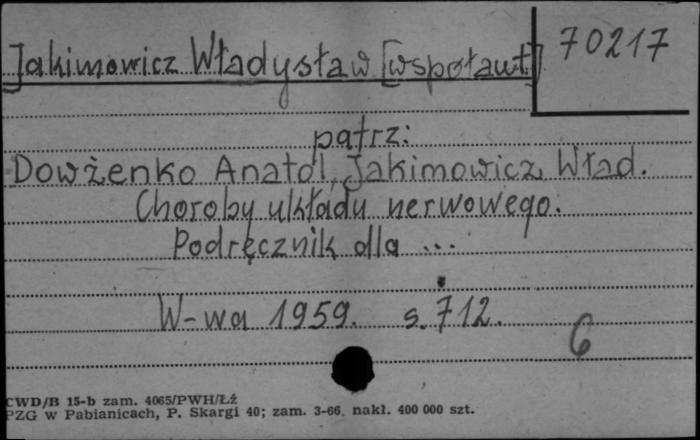 Jakimowicz Władysław [współaut.] 70217
patrz:
Dowżenko Anatol, Jakimowicz Wład.
Choroby układu nerwowego.
Podręcznik dla ...
W-wa 1959. s. 712.
6
CWD/B 15-b zam. 4065/PWH/Łż
PZG w Pabianicach, P. Skargi 40; zam. 3-66. nakł. 400 000 szt.